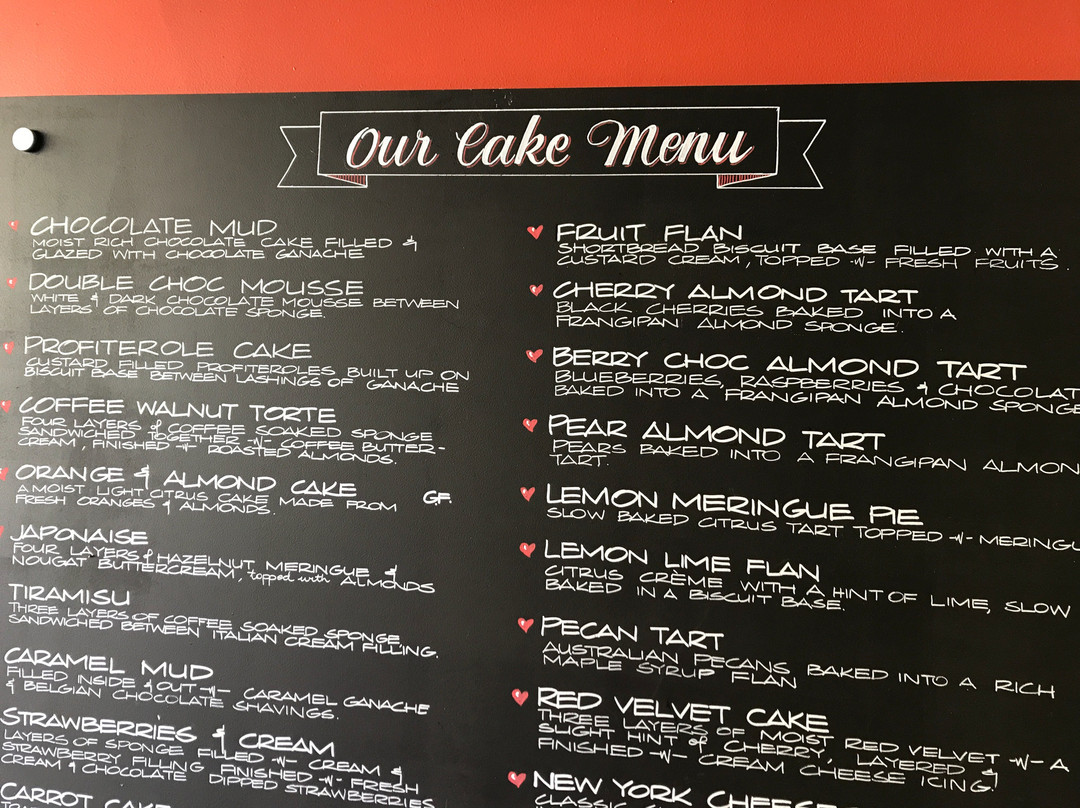 Our Cake Menu
CHOCOLATE MUD
MOIST RICH CHOCOLATE CAKE FILLED &
GLAZED WITH CHOCOLATE GANACHE
DOUBLE CHOC MOUSSE
WHITE & DARK CHOCOLATE MOUSSE BETWEEN
LAYERS OF CHOCOLATE SPONGE.
PROFITEROLE CAKE
CUSTARD FILLED PROFITEROLES BUILT UP ON
BISCUIT BASE BETWEEN LASHINGS OF GANACHE
COFFEE WALNUT TORTE
FOUR LAYERS of COFFEE SOAKED SPONGE
SANDWICHED TOGETHER -W- COFFEE BUTTER-
CREAM, FINISHED -W- ROASTED ALMONDS.
ORANGE & ALMOND CAKE
A MOIST LIGHT CITRUS CAKE MADE FROM G.F.
FRESH ORANGES & ALMONDS.
JAPONAISE
FOUR LAYERS of HAZELNUT MERINGUE &
NOUGAT BUTTERCREAM, topped with ALMONDS
TIRAMISU
THREE LAYERS OF COFFEE SOAKED SPONGE
SANDWICHED BETWEEN ITALIAN CREAM FILLING.
CARAMEL MUD
FILLED INSIDE & OUT -W- CARAMEL GANACHE
& BELGIAN CHOCOLATE SHAVINGS.
STRAWBERRIES & CREAM
LAYERS OF SPONGE FILLED -W- CREAM &
STRAWBERRY FILLING FINISHED -W- FRESH
CREAM & CHOCOLATE DIPPED STRAWBERRIES
CARROT CAKE
FRUIT FLAN
SHORTBREAD BISCUIT BASE FILLED WITH A
CUSTARD CREAM, TOPPED -W- FRESH FRUITS.
CHERRY ALMOND TART
BLACK CHERRIES BAKED INTO A
FRANGIPAN ALMOND SPONGE.
BERRY CHOC ALMOND TART
BLUEBERRIES, RASPBERRIES & CHOCOLAT
BAKED INTO A FRANGIPAN ALMOND SPONGE
PEAR ALMOND TART
PEARS BAKED INTO A FRANGIPAN ALMON
TART.
LEMON MERINGUE PIE
SLOW BAKED CITRUS TART TOPPED -W- MERINGU
LEMON LIME FLAN
CITRUS CRÈME WITH A HINT OF LIME, SLOW
BAKED IN A BISCUIT BASE.
PECAN TART
AUSTRALIAN PECANS BAKED INTO A RICH
MAPLE SYRUP FLAN
RED VELVET CAKE
THREE LAYERS OF MOIST RED VELVET -W- A
SLIGHT HINT of CHERRY, LAYERED &
FINISHED -W- CREAM CHEESE ICING.
NEW YORK CHEESE
CLASSIC